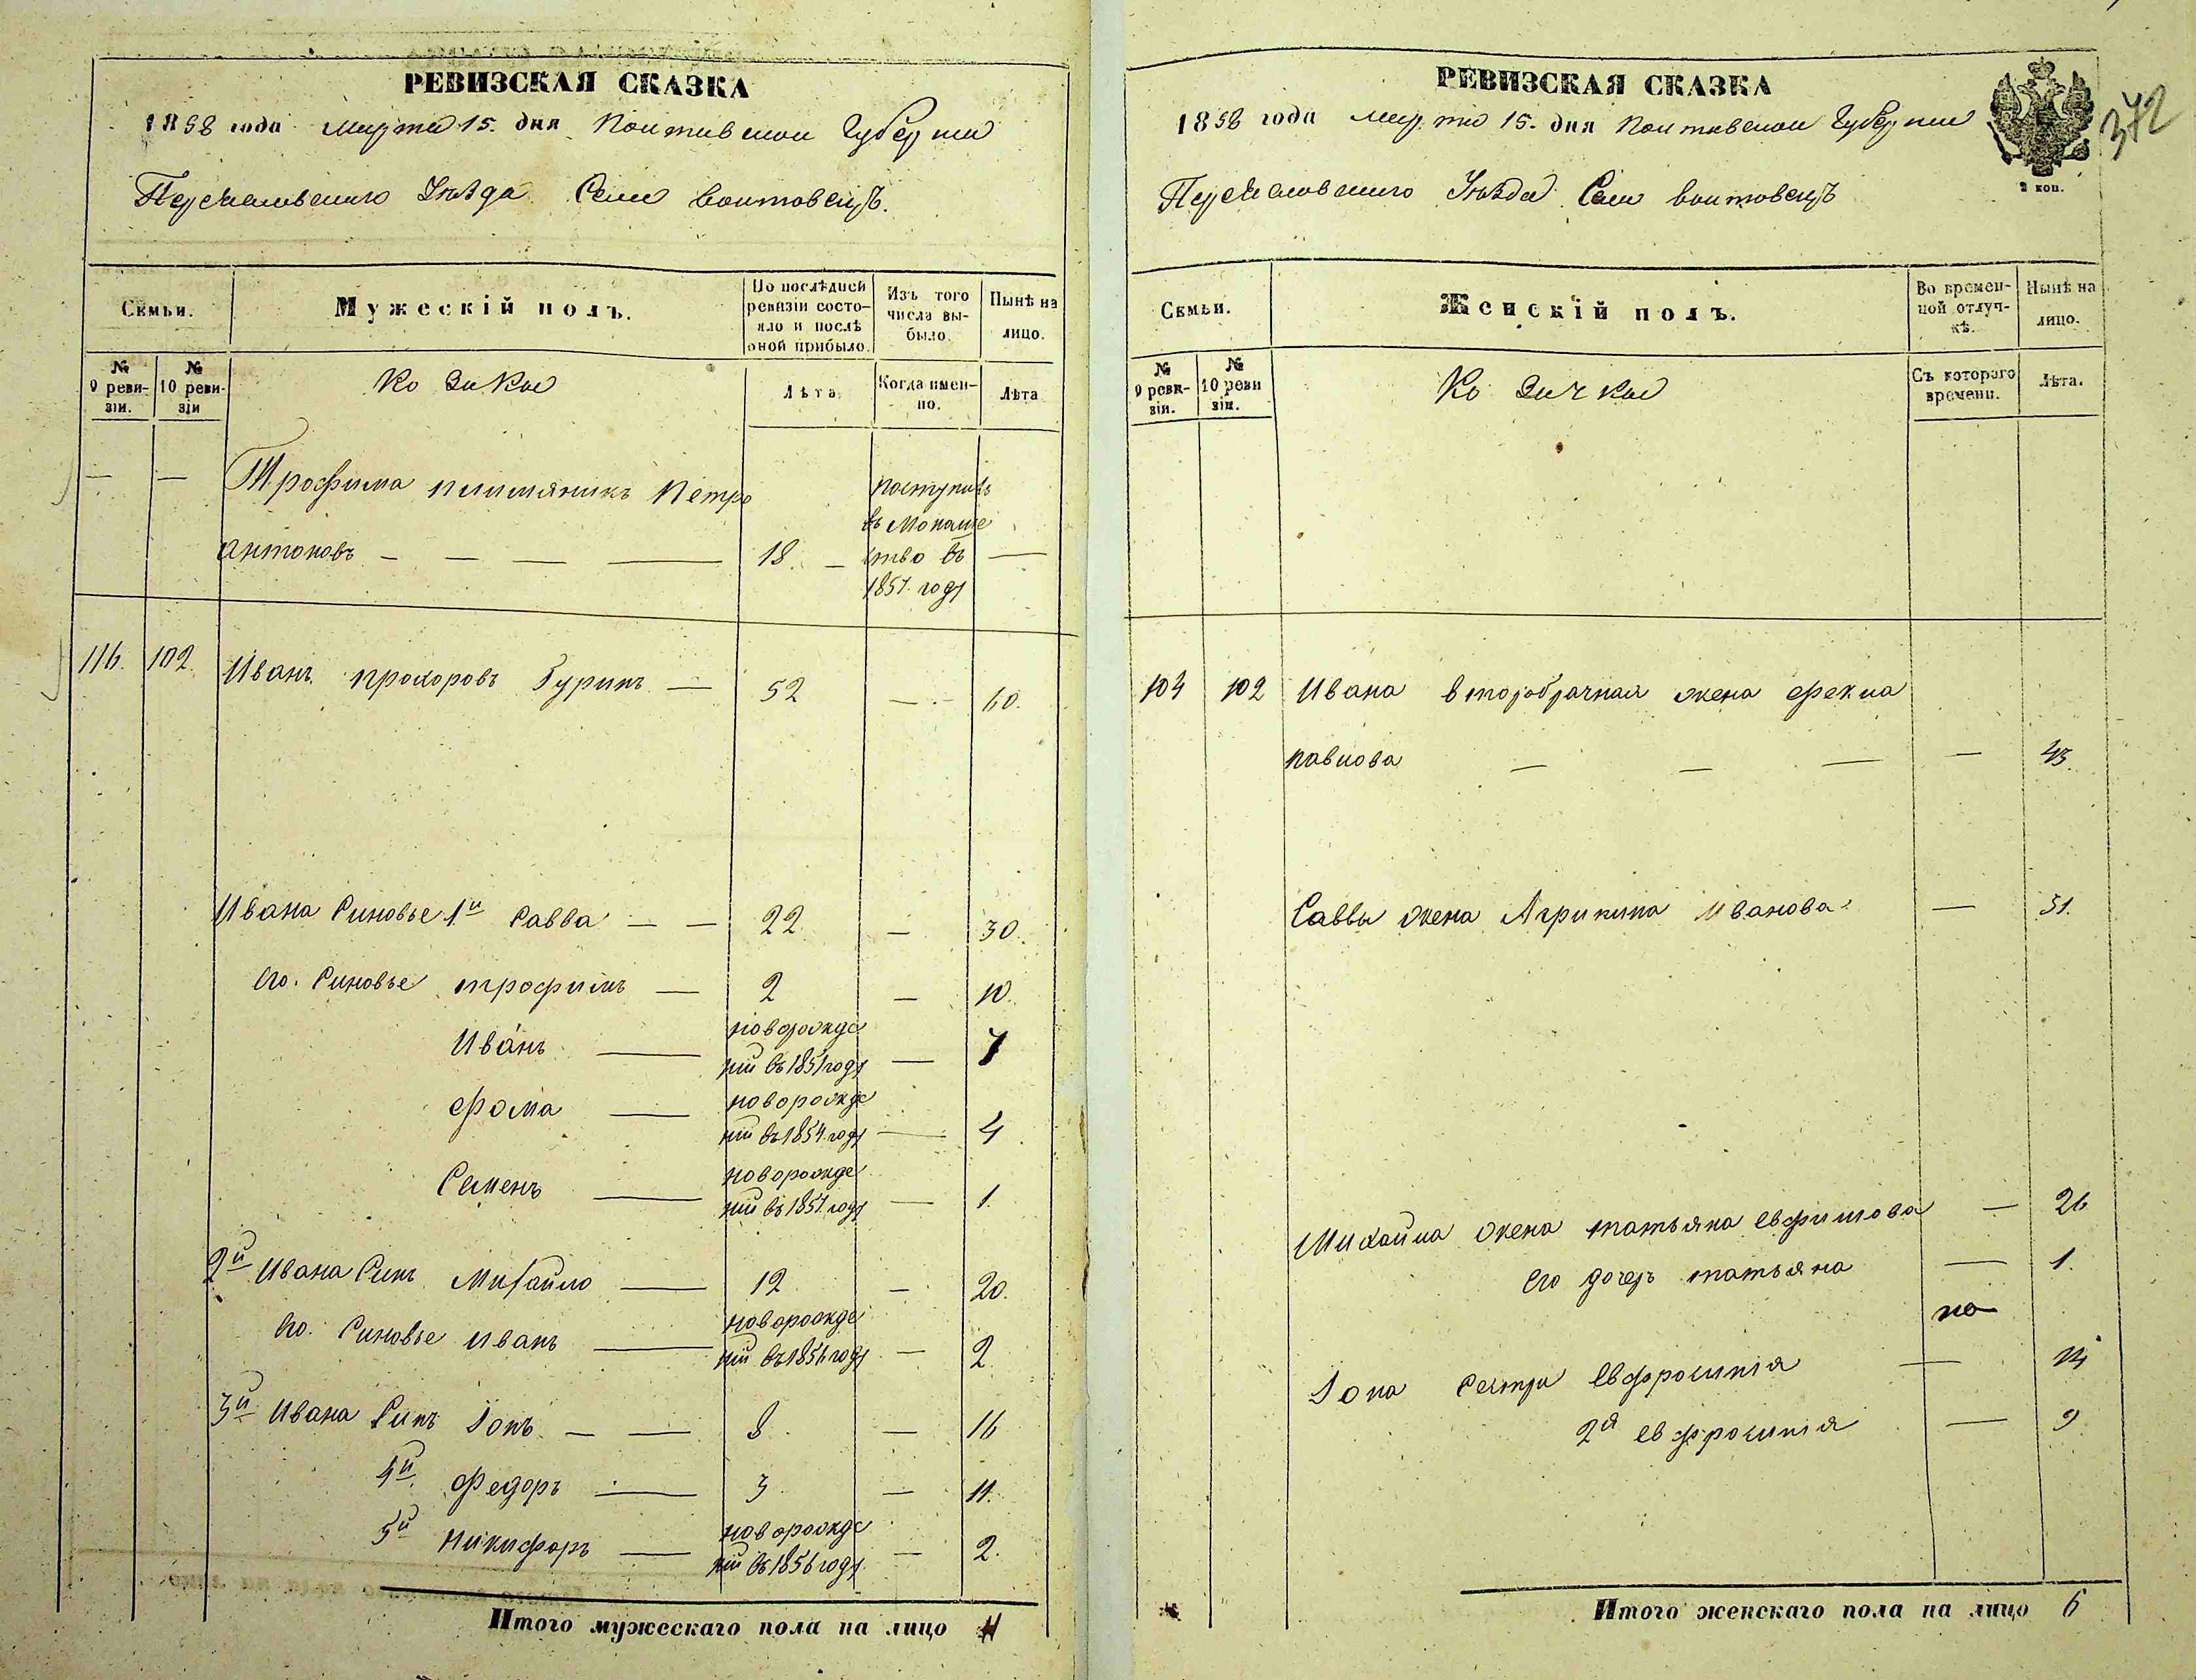 РЕВИЗСКАЯ СКАЗКА
1858 года марта 15. дня Полтавской Губерніи
Переяславскаго Уѣзда Села Войтовецъ.
Семьи.
Мужескій полъ.
По послѣдней ревизіи состояло и послѣ оной прибыло.
Изъ того числа выбыло.
Нынѣ на лицо.
№ 9 ревизіи.
№ 10 ревизіи
Козаки
Лѣта
Когда именно.
Лѣта
— — Трофима племяникъ Петро поступилъ
въ монаше
антоновъ — — — — 18. — ство въ —
1857. году
116. 102. Иванъ прохоровъ Гуринъ — 52 — 60.
Ивана Синовье 1й Савва — — 22 — 30.
его. Синовье трофимъ — 2 — 10.
новорожде
Иванъ — ній въ 1851 году — 7
новорожде
Фома — ній въ 1854 году — 4
новорожде
Семенъ — ній въ 1857 году — 1.
2й Ивана Синъ Михайло — 12 — 20.
новорожде
его. Синовье иванъ — ній въ 1856 году — 2
3й Ивана Синъ Іонъ — — 8 — 16
4й Федоръ — 3 — 11.
новорожде
5й Никифоръ — ній въ 1856 году — 2.
Итого мужескаго пола на лицо 11
РЕВИЗСКАЯ СКАЗКА
372
1858 года марта 15. дня Полтавской Губерніи
2 коп.
Переяславскаго Уѣзда Села Войтовецъ
Семьи.
Женскій полъ.
Во временной отлучкѣ.
Нынѣ на лицо.
№ 9 ревизіи.
№ 10 ревизіи.
Козачки
Съ котораго времени.
Лѣта.
104 102 Ивана второбрачная жена Фекла
павлова — — — — 43.
Саввы жена Агрипина Иванова — 31.
Михайла жена татьяна Евфимова — 26
его дочеръ татьяна — 1.
Іона Сестри Евфросинія — 14
2я евфросинія — 9
Итого женскаго пола на лицо 6